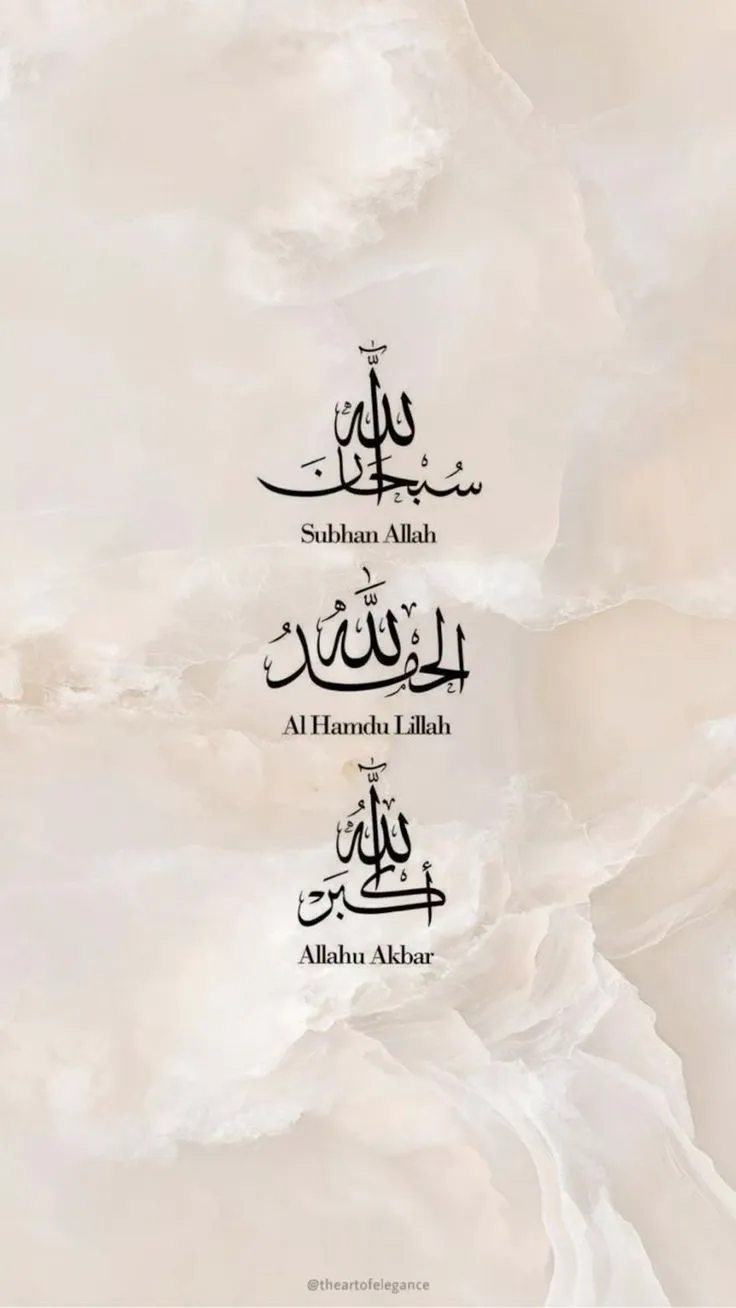 سُبْحَانَ اللّٰه
Subhan Allah
الْحَمْدُ لِلّٰه
Al Hamdu Lillah
اللّٰهُ أَكْبَر
Allahu Akbar
@theartofelegance